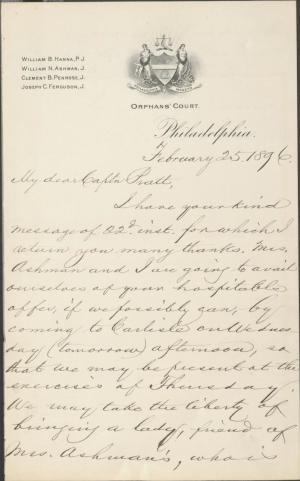 WILLIAM B. HANNA, P.J.
WILLIAM N. ASHMAN, J.
CLEMENT B. PENROSE, J.
JOSEPH C. FERGUSON, J.
ORPHANS' COURT.
Philadelphia.
February 25. 1896.
My dear Captn Pratt,
I have your kind
message of 22d. inst. for which I
return you many thanks. Mrs.
Ashman and I are going to avail
ourselves of your hospitable
offer, if we possibly can, by
coming to Carlisle on Wednes-
day (tomorrow) afternoon, so
that we may be present at the
exercises of Thursday.
We may take the liberty of
bringing a lady, friend of
Mrs. Ashman's, who is